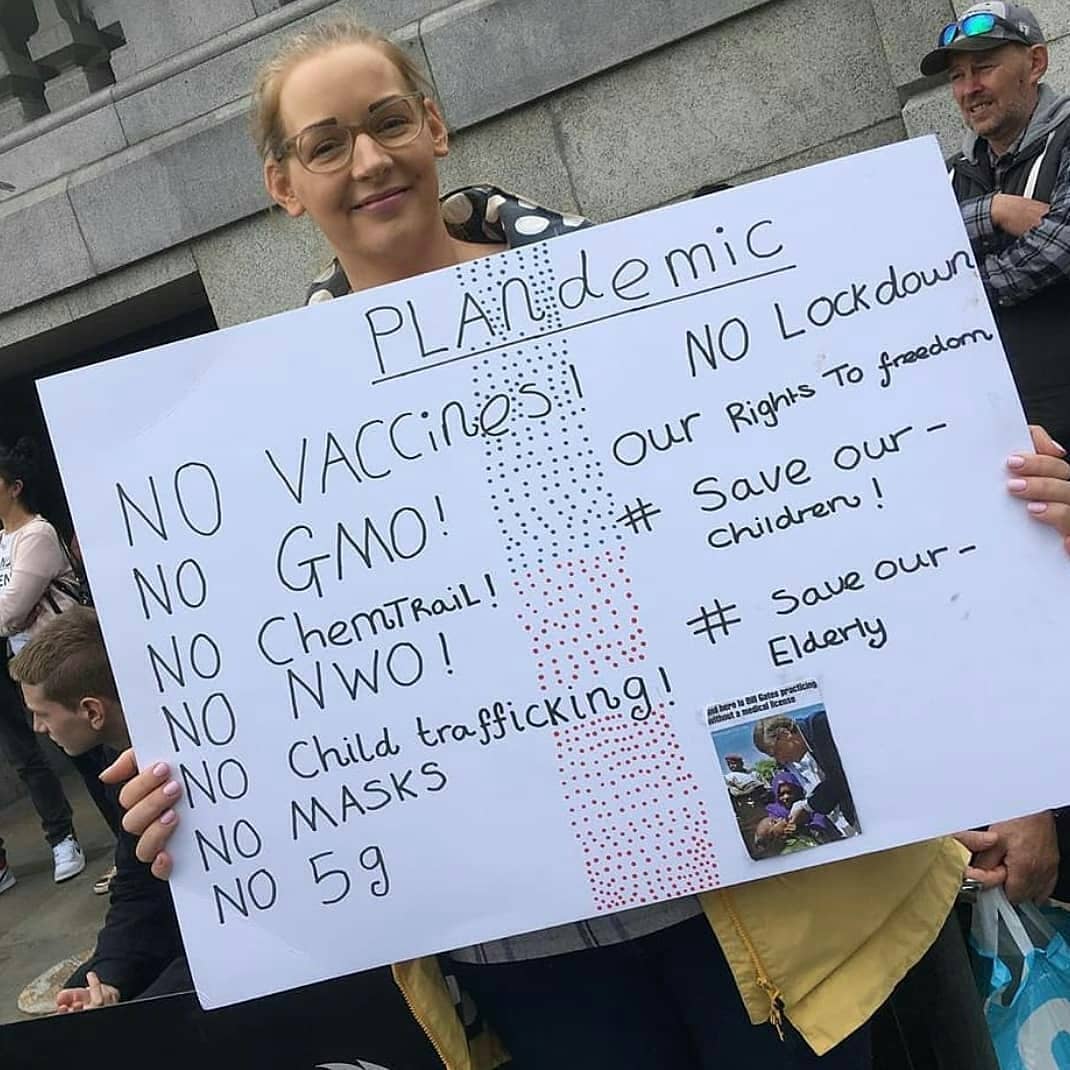 PLANdemic
NO VACCiNes!
NO GMO!
NO ChemTRaiL!
NO NWO!
NO Child trafficking!
NO MASKS
NO 5g
NO Lockdown
OUr Rights To freedom
# Save our-
children!
# Save our-
Elderly
and here is Bill Gates practicing
without a medical license